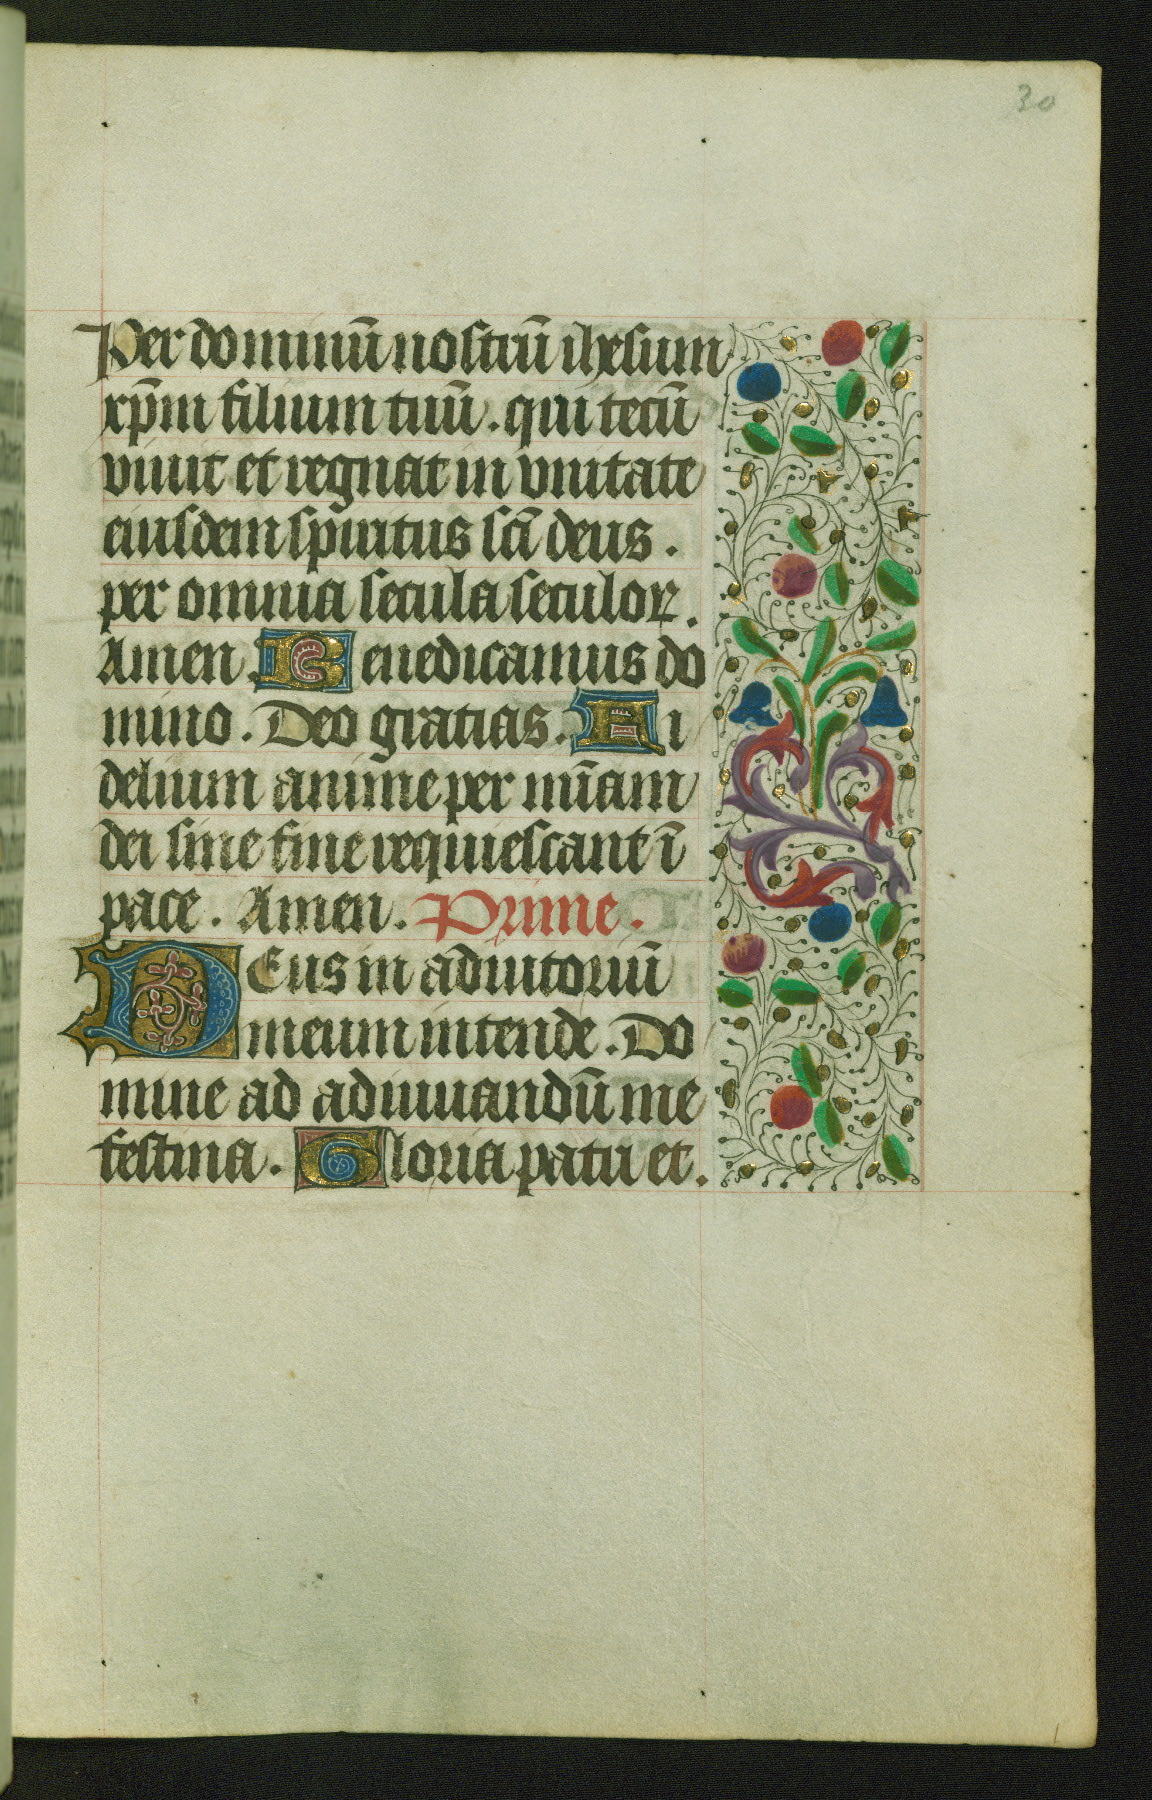 30
Per dominū nostrū ihesum
xp̄m filium tuū. qui tecū
viuit et regnat in vnitate
eiusdem sp̄iritus sc̄i deus.
per omnia secula seculoꝝ.
Amen. Benedicamus do
mino. Deo gratias. Fi
delium anime per mīam
dei sine fine requiescant ī
pace. Amen. Prime.
DEus in adiutoriū
meum intende. Do
mine ad adiuuandū me
festina. Gloria patri et.